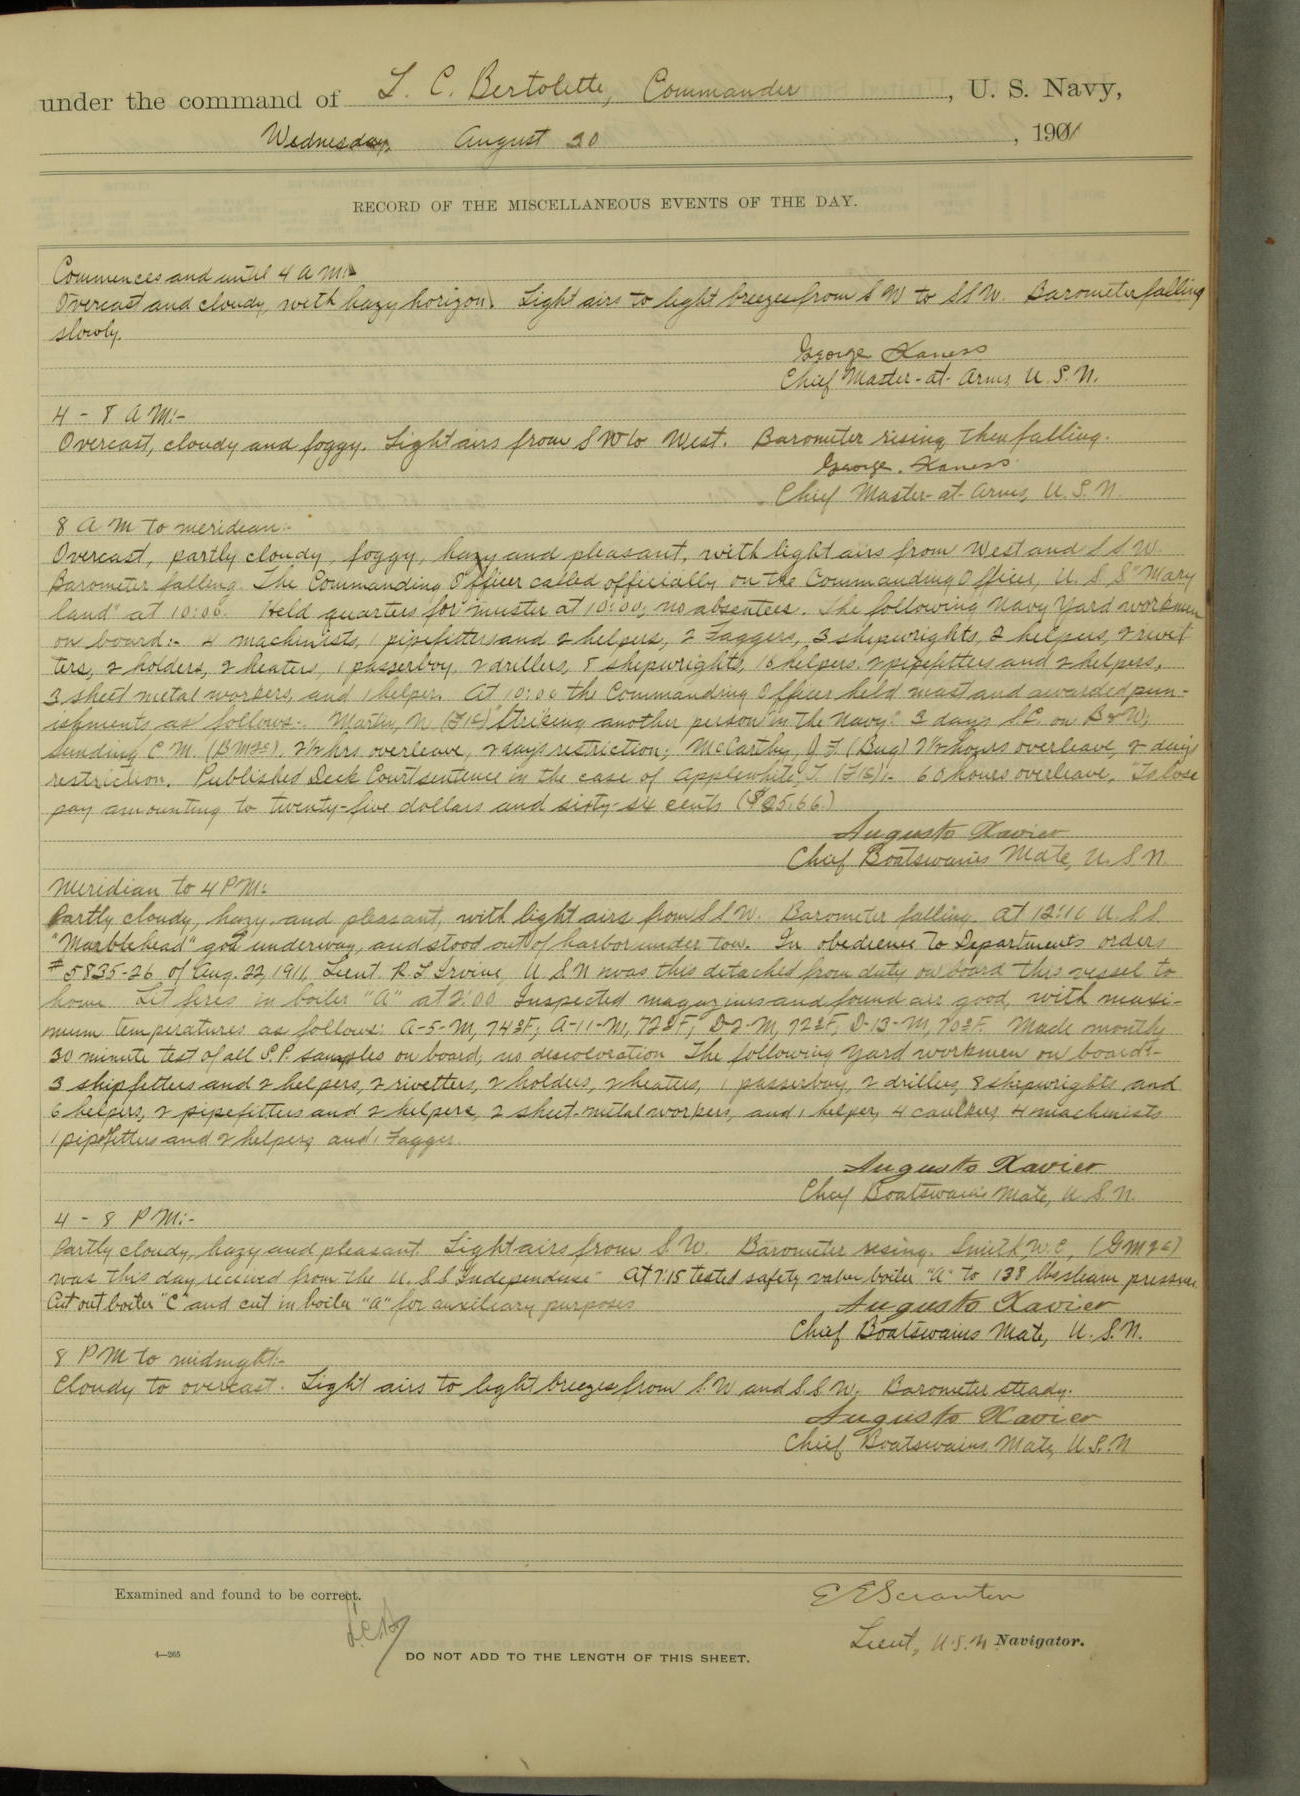 under the command of L. C. Bertolette, Commander, U. S. Navy,
Wednesday, August 30, 1901
RECORD OF THE MISCELLANEOUS EVENTS OF THE DAY.
Commences and until 4 A M:-
Overcast and cloudy, with hazy horizon. Light airs to light breezes from S W to SSW. Barometer falling
slowly.
George Kaness
Chief Master-at-Arms, U. S. N.
4 - 8 A M:-
Overcast, cloudy and foggy. Light airs from S W to West. Barometer rising, then falling.
George Kaness
Chief Master-at-Arms, U. S. N.
8 A M to meridian:-
Overcast, partly cloudy, foggy, hazy and pleasant, with light airs from West and S S W.
Barometer falling. The Commanding Officer called officially on the Commanding Officer, U. S. S. "Mary
land" at 10:06. Held quarters for muster at 10:00, no absentees. The following Navy Yard workmen
on board:- 4 machinists, 1 pipefitters and 2 helpers, 2 Laggers, 3 shipwrights, 2 helpers, 2 rivet
ters, 2 holders, 2 heaters, 1 passerboy, 2 drillers, 8 shipwrights, 16 helpers, 2 pipefitters and 2 helpers,
3 sheet metal workers, and 1 helper. At 10:00 the Commanding Officer held mast and awarded pun-
ishments as follows:- Martin, N. (F1c) "Striking another person in the Navy." 3 days S.C. on B & W;
Sunding C. M. (BM2c). 2½ hrs overleave, 2 days restriction; McCarthy, J F. (Bug) 2½ hours overleave, 2 days
restriction. Published Deck Court sentence in the case of Applewhite, T. (F1c):- 60 hours overleave. "To lose
pay amounting to twenty-five dollars and sixty-six cents ($25.66.)
Augusto Xavier
Chief Boatswains Mate, U. S. N.
Meridian to 4 P M:-
Partly cloudy, hazy and pleasant, with light airs from S S W. Barometer falling. At 12:10 U. S. S.
"Marblehead" got underway, and stood out of harbor under tow. In obedience to Departments orders
# 5835-26 of Aug. 22, 1911, Lieut. R. L. Irvine, U. S. N was this detached from duty on board this vessel to
home Lit fires in boiler "A" at 2:00 Inspected magazines and found air good, with maxi-
mum temperatures as follows: A-5-M, 74°F; A-11-M, 72°F; D-2-M, 72°F, D-13-M, 70°F. Made monthly
30 minute test of all S. P. samples on board, no discoloration The following yard workmen on board:-
3 shipfitters and 2 helpers, 2 rivetters, 2 holders, 2 heaters, 1 passerboy, 2 drillers, 8 shipwrights and
6 helpers, 2 pipefitters and 2 helpers, 2 sheet-metal workers, and 1 helper, 4 caulkers, 4 machinists
1 pipefitters and 2 helpers, and 1 Lagger.
Augusto Xavier
Chief Boatswains Mate, U. S. N.
4 - 8 P M:-
Partly cloudy, hazy and pleasant. Light airs from S. W. Barometer rising. Smith, W. C. (GM2c)
was this day received from the U. S. S "Independence" At 7:15 tested safety valve boiler "A" to 138 lbs steam pressure
Cut out boiler "C" and cut in boiler "A" for auxiliary purposes.
Augusto Xavier
Chief Boatswains Mate, U. S. N.
8 P M to midnight:-
Cloudy to overcast. Light airs to light breezes from S. W and S. S. W. Barometer steady.
Augusto Xavier
Chief Boatswains Mate, U. S. N
Examined and found to be correct.
E E Scranton
Lieut, U. S. N. Navigator.
4—265
DO NOT ADD TO THE LENGTH OF THIS SHEET.